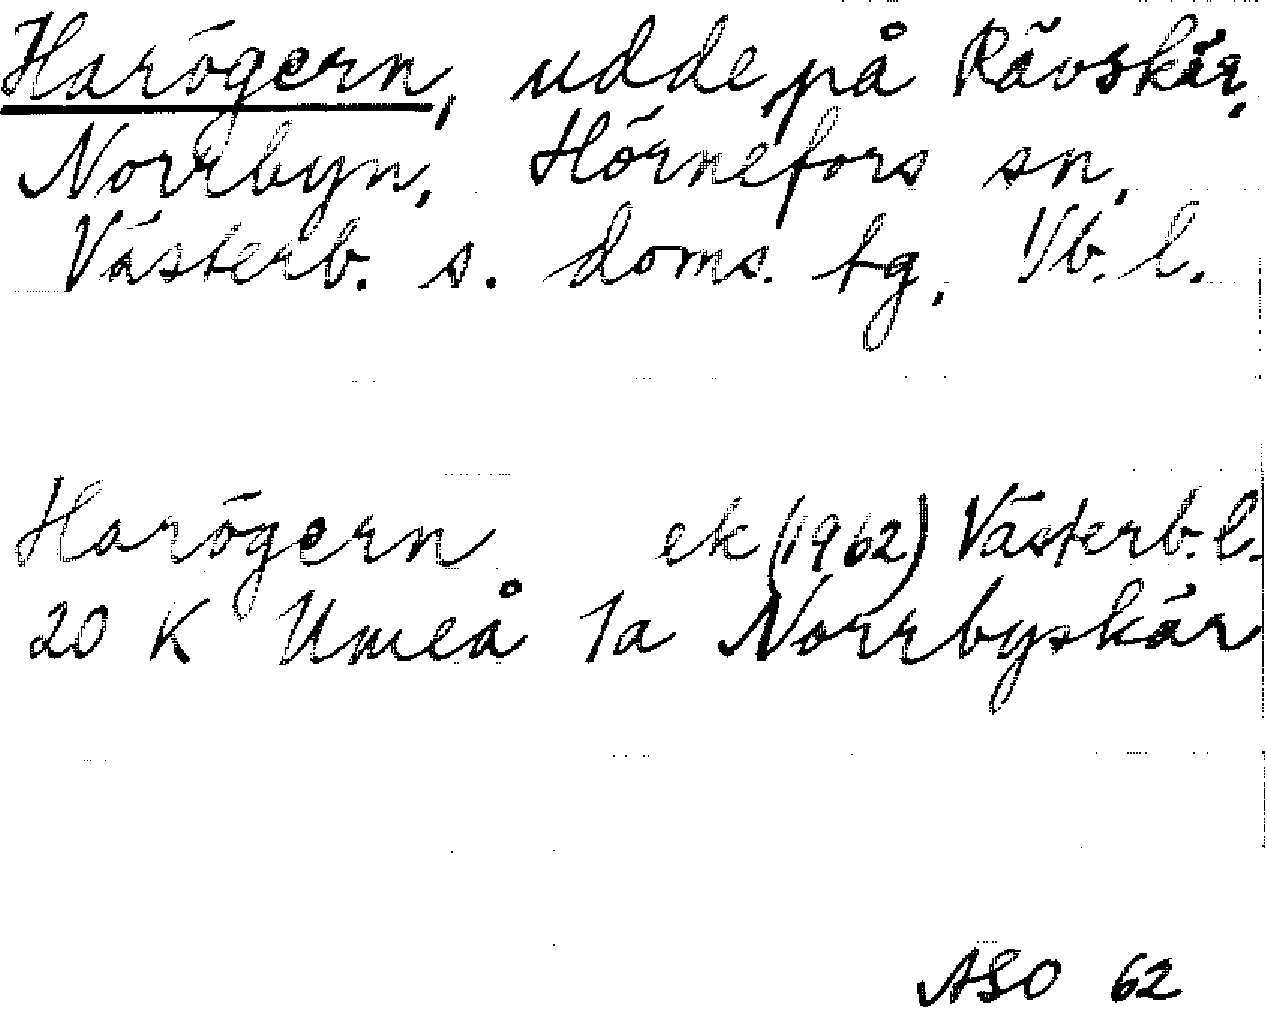 Harögern, udde på Rävskär,
Norrbyn, Hörnefors sn,
Västerb. s. doms. tg, Vb. l.
Harögern ek (1962) Västerb. l.
20 K Umeå 1a Norrbyskär
ASO 62